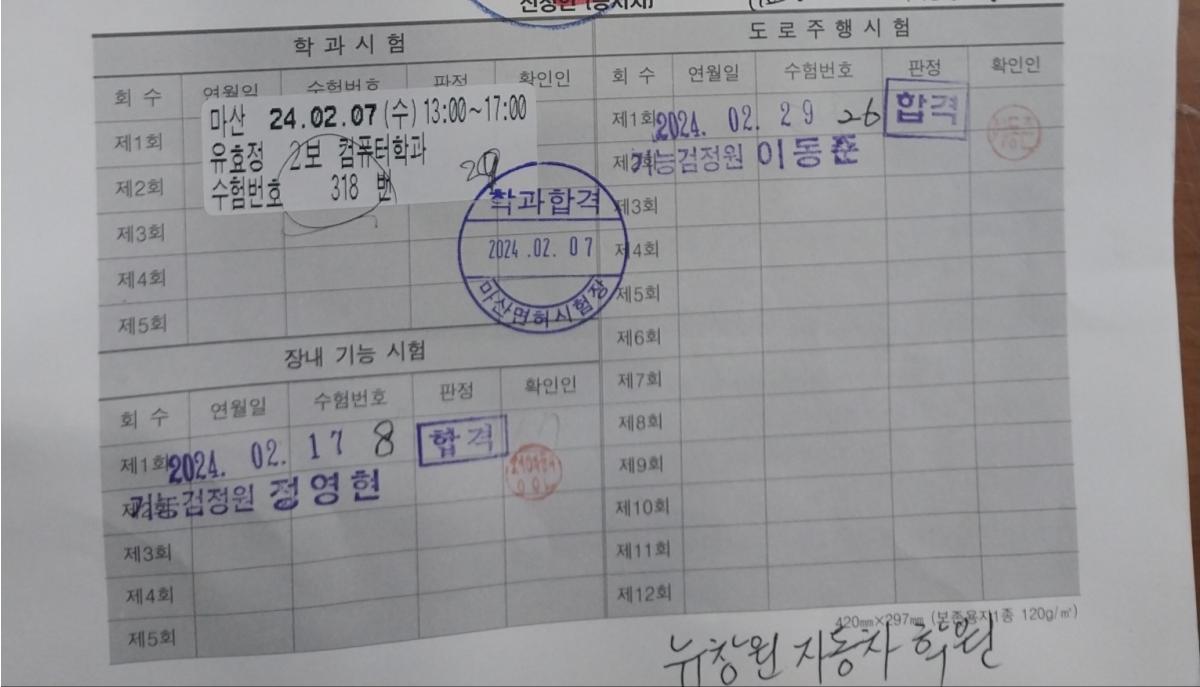 신청인 (응시자)
학 과 시 험
회 수 연월일 수험번호 판정 확인인
마산 24.02.07 (수) 13:00~17:00
유효정 2보 컴퓨터학과
수험번호 318 번
29
제1회
제2회
제3회
제4회
제5회
학과합격
2024.02.07
마산면허시험장
장내 기능 시험
회 수 연월일 수험번호 판정 확인인
제1회 2024. 02. 17 8 합격
기능검정원 정영현
제3회
제4회
제5회
도 로 주 행 시 험
회 수 연월일 수험번호 판정 확인인
제1회 2024. 02. 29 26 합격
기능검정원 이동준
제3회
제4회
제5회
제6회
제7회
제8회
제9회
제10회
제11회
제12회
420㎜×297㎜ (본종용지1종 120g/㎡)
뉴창원 자동차 학원